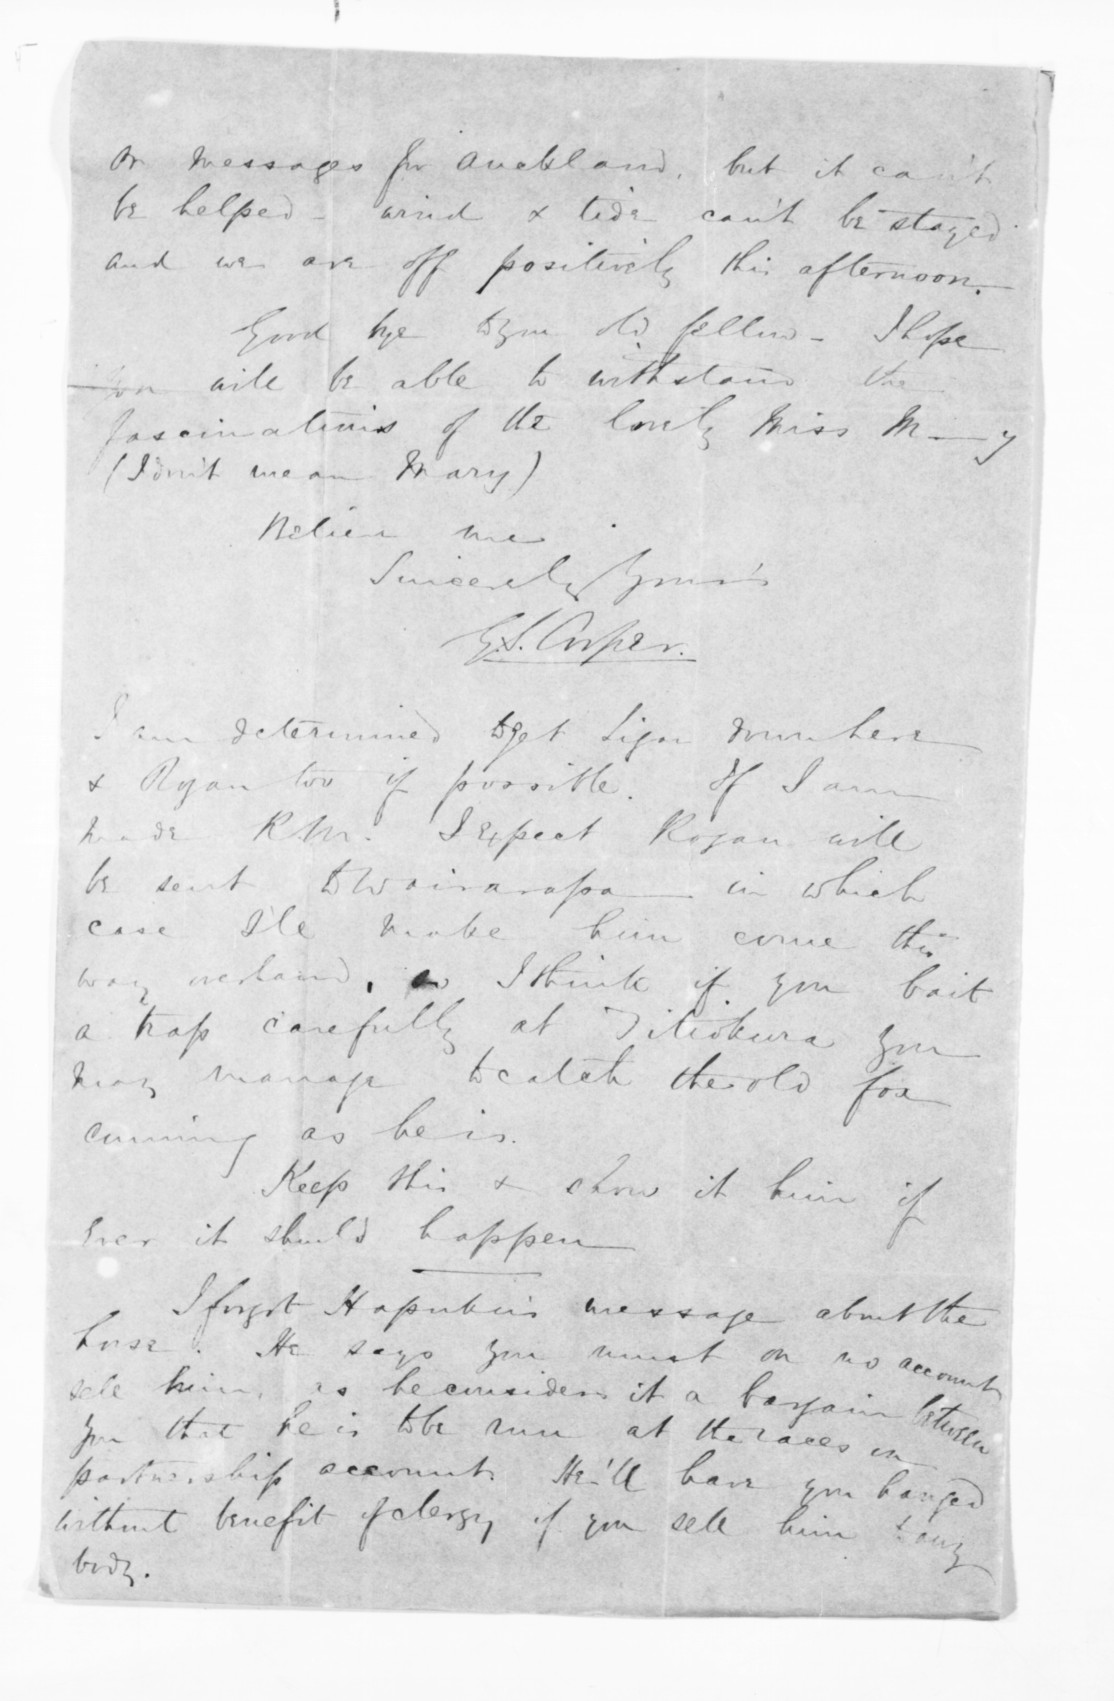 or messages for Auckland, but it can't
be helped - wind & tide can't be stayed
and we are off positively this afternoon.
Good bye to you old fellow - I hope
you will be able to withstand the
fascinations of the lovely Miss M--y
(I don't mean Mary)
Believe me
Sincerely Yours
G.S. Cooper.
I am determined to get Ligar down here
& Rogan too if possible. If I am
made R.M. I expect Rogan will
be sent to Wairarapa in which
case I'le make him come this
way overland, so I think if you bait
a trap carefully at Titiokura you
may manage to catch the old fox
cunning as he is.
Keep this & show it him if
ever it should happen
I forgot Hapuku's message about the
horse. He says you must on no account
sell him, as he considers it a bargain between
you that he is to be run at the races on
partnership account. He'll have you hanged
without benefit of clergy if you sell him to any
body.